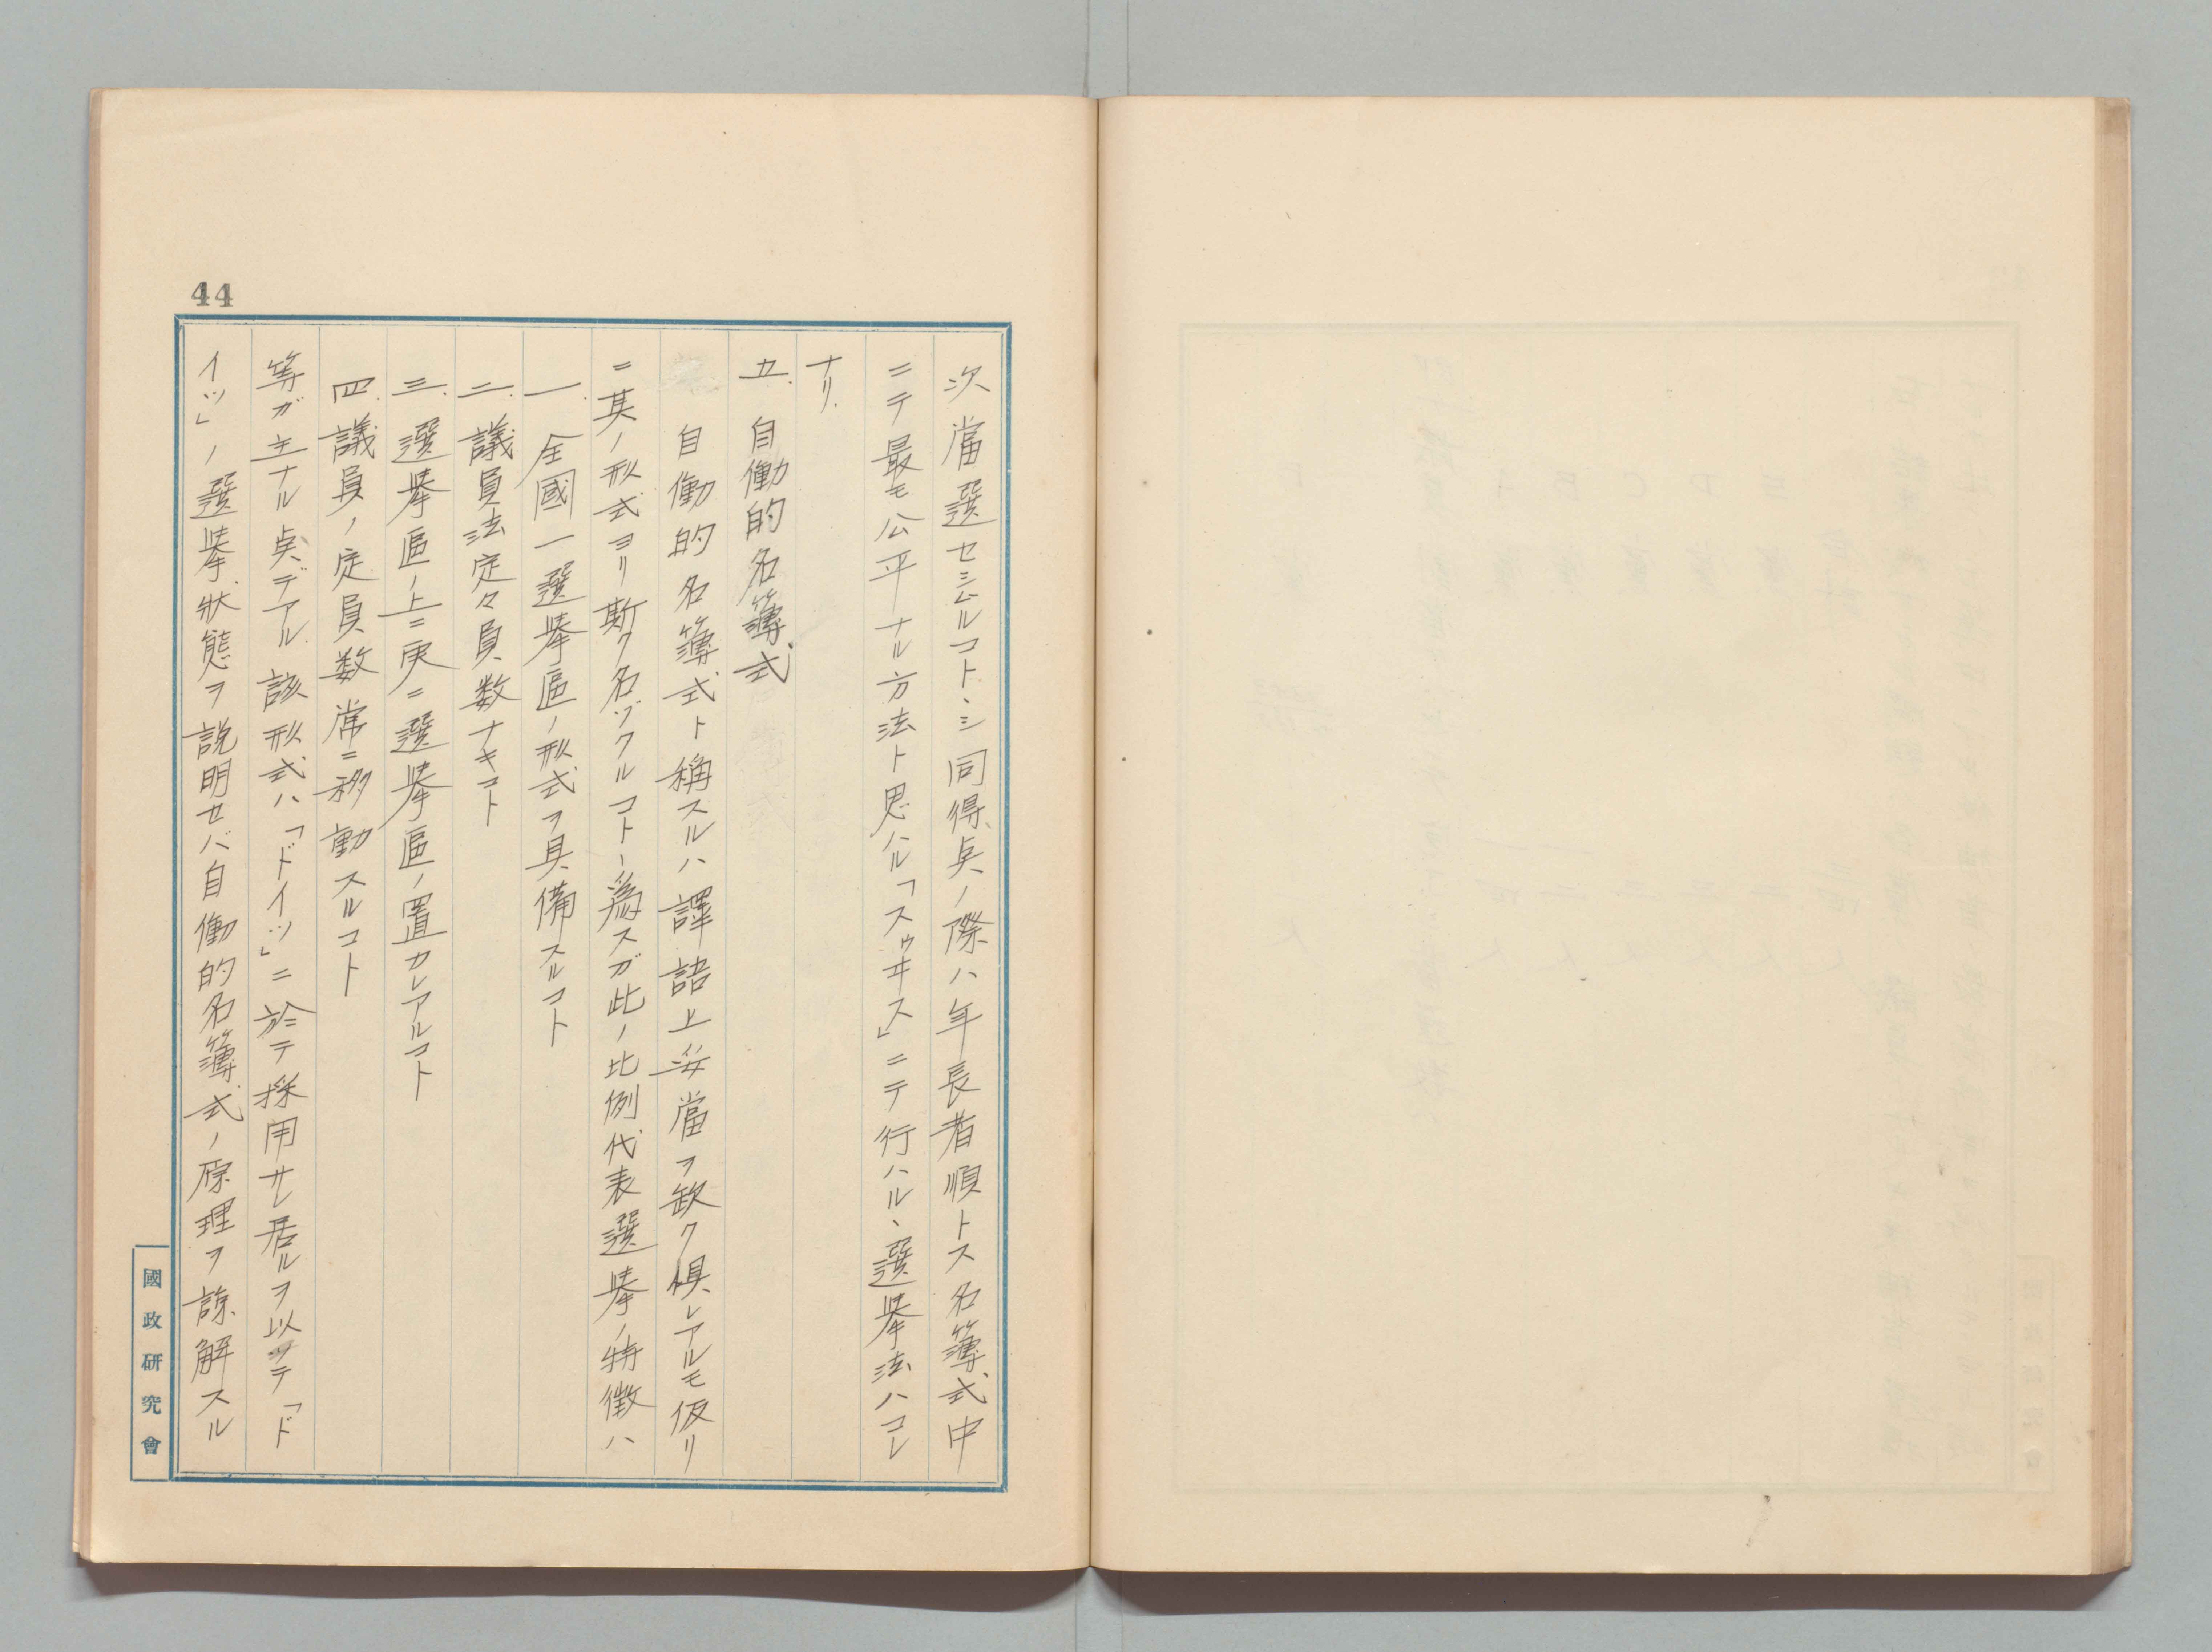 44
次當選セシムルコトヽシ同得点ノ際ハ年長者順トス名簿式中
ニテ最モ公平ナル方法ト思ハル「スウヰス」ニテ行ハルヽ選挙法ハコレ
ナリ.
五. 自働的名簿式
自働的名簿式ト稱スルハ譯語上妥當ヲ欽ク惧レアルモ仮リ
ニ其ノ形式ヨリ斯ク名ヅクルコトヽ為スガ此ノ比例代表選挙ノ特徴ハ
一. 全國一選挙區ノ形式ヲ具備スルコト
二. 議員法定々員数ナキコト
三. 選挙區ノ上ニ更ニ選挙區ノ置カレアルコト
四. 議員ノ定員数常ニ移動スルコト
等ガ主ナル点デアル.該形式ハ「ドイツ」ニ於テ採用サレ居ルヲ以テ「ド
イツ」ノ選挙状態ヲ説明セバ自働的名簿式ノ原理ヲ諒解スル
國政研究會